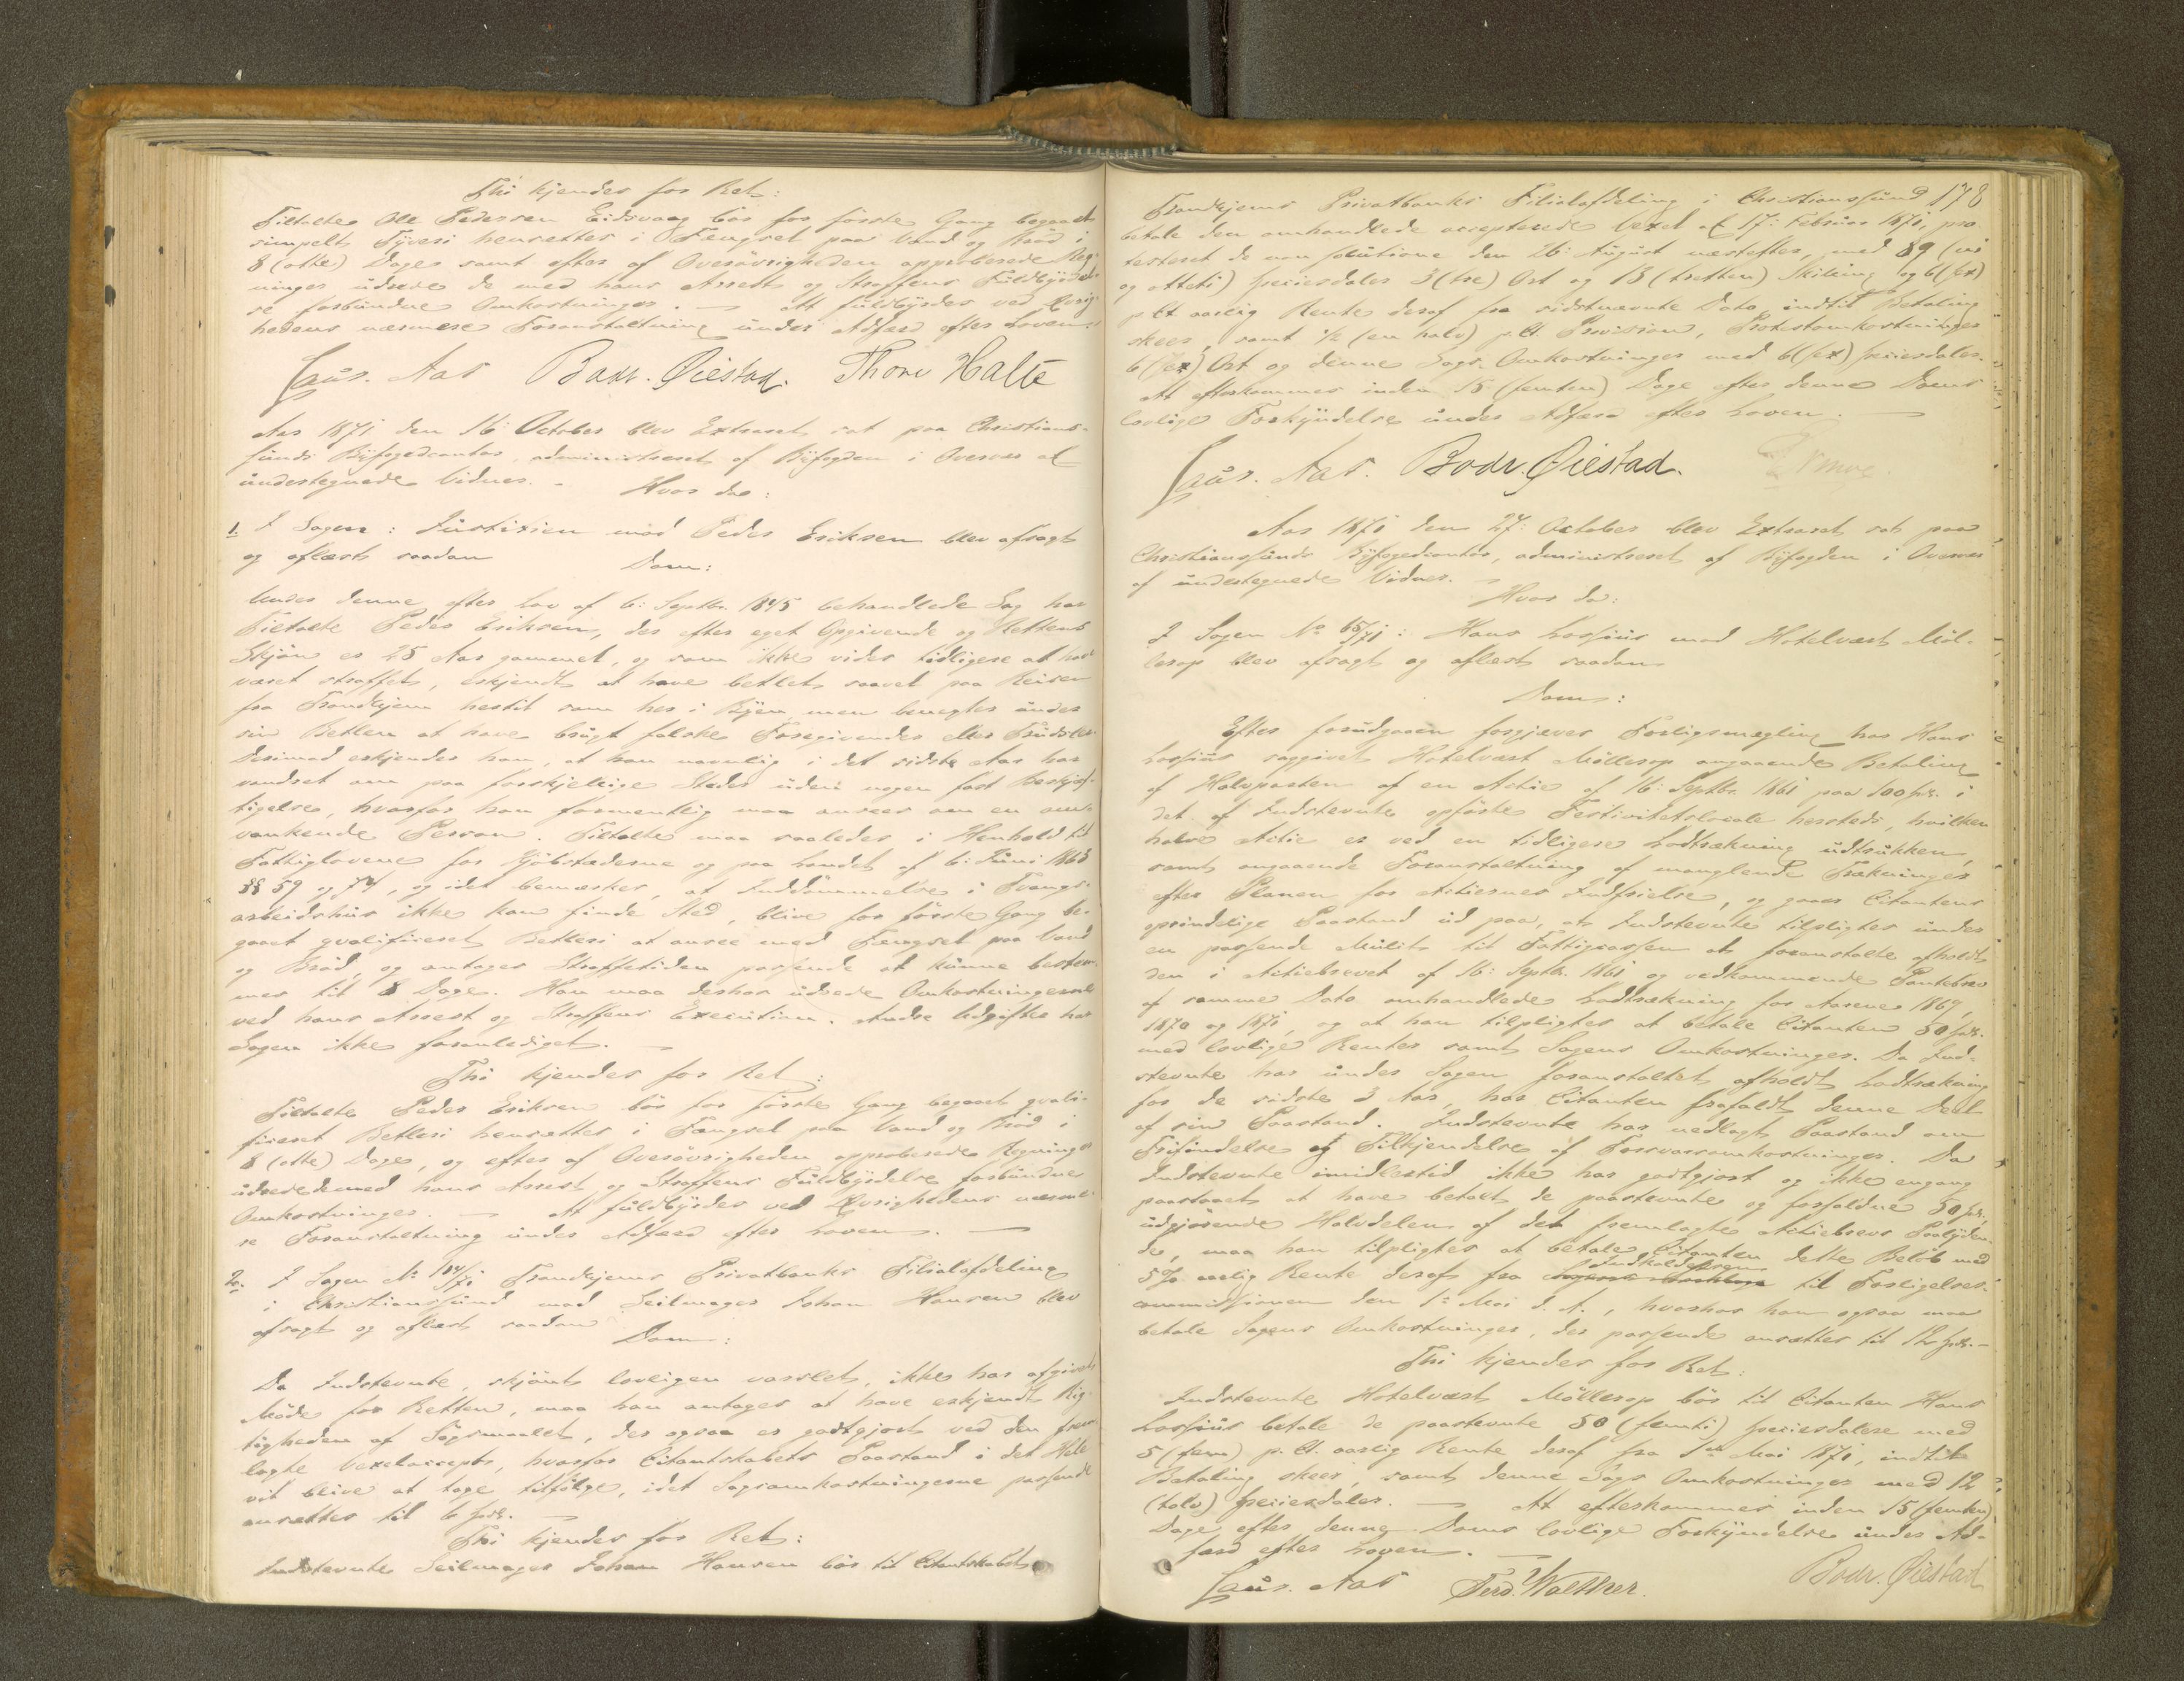 Thi kjendes for Ret:
Tiltalte Ole Pedersen Eidsvaag bör for förste Gang begaaet
simpelt Tyveri hensættes i Fængsel paa Vand og Bröd i
8 (otte) Dage samt efter af Overövrigheden approberede Reg-
ninger udrede de med hans Arrest og Straffens Fuldbyrdel-
se forbundne Omkostninger. — At fuldbyrdes ved Övrig-
hedens nærmere Foranstaltning under Adfærd efter Loven.
Laur. Aas Bodv. Øiestad. Thore Halte
Aar 1871 den 16: October blev Extraret sat paa Christian-
sunds Byfogedcontor, administreret af Byfogden i Overvær af
undertegnede Vidner. - Hvor da:
1. I Sagen: Justitien mod Peder Eriksen blev afsagt
og oplæst saadan
Dom:
Under denne efter Lov af 6: Septbr. 1845 behandlede Sag har
Tiltalte Peder Eriksen, der efter eget Opgivende og Rettens
Skjön er 25 Aar gammel, og som ikke vides tidligere at have
været straffet, erkjendt at have betlet saavel paa Reisen
fra Trondhjem hertil som her i Byen men benegtet under
sin Betlen at have brugt falske Foregivender eller Trudsler.
Derimod erkjender han, at han navnlig i det sidste Aar har
vandret om paa forskjellige Steder uden nogen fast Beskjæf-
tigelse, hvorfor han formentlig maa ansees som en om-
vankende Person. Tiltalte maa saaledes i Henhold til
Fattiglovene for Kjöbstæderne og paa Landet af 6: Juni 1863
§§ 59 og 74, og idet bemærkes, at Inddömmelse i Tvangs-
arbeidshus ikke kan finde Sted, blive for förste Gang be-
gaaet qvalificeret Betleri at ansee med Fængsel paa Vand
og Bröd, og antages Straffetiden passende at kunne bestem-
mes til 8 Dage. Han maa derhos udrede Omkostningerne
ved hans Arrest og Straffens Execution. Andre Udgifter har
Sagen ikke foranlediget. —
Thi kjendes for Ret:
Tiltalte Peder Eriksen bör for förste Gang begaaet qvali-
ficeret Betleri hensættes i Fængsel paa Vand og Bröd i
8 (otte) Dage, og efter af Overövrigheden approberede Regninger
udrede de med hans Arrest og Straffens Fuldbyrdelse forbundne
Omkostninger. — At fuldbyrdes ved Övrighedens nærme-
re Foranstaltning under Adfærd efter Loven. —
2. I Sagen No 184/71 Trondhjems Privatbanks Filialafdeling
i Christianssund mod Seilmager Johan Hansen blev
afsagt og oplæst saadan
Dom:
Da Indstevnte, skjönt lovligen varslet, ikke har afgivet
Möde for Retten, maa han antages at have erkjendt Rig-
tigheden af Sögsmaalet, der ogsaa er godtgjort ved den frem-
lagte Vexelaccept, hvorfor Citantskabets Paastand i det Hele
vil blive at tage tilfölge, idet Sagsomkostningerne passende
ansættes til 6 spdr. —
Thi kjendes for Ret:
Indstevnte Seilmager Johan Hansen bör til Citantskabet
178
Trondhjems Privatbanks Filialafdeling i Christianssund
betale den omhandlede accepterede Vexel af 17: Februar 1871, pro-
testeret de non solutione den 26: August næstefter, med 89 (ni
og otteti) Speciesdaler 3 (tre) Ort og 13 (tretten) Skilling og 6 (sex)
p. Ct. aarlig Rente deraf fra sidstnævnte Dato indtil Betaling
skeer, samt ½ (en halv) p. Ct. Provision, Protestomkostninger
6 (sex) Ort og denne Sags Omkostninger med 6 (sex) Speciesdaler.
At efterkommes inden 15 (femten) Dage efter denne Doms
lovlige Forkyndelse under Adfærd efter Loven. —
Laur. Aas. Bodv. Øiestad.
Aar 1871 den 27: October blev Extraret sat paa
Christianssunds Byfogedcontor, administreret af Byfogden i Overvær
af undertegnede Vidner. —
Hvor da:
I Sagen No 65/71: Hans Lossius mod Hotelvært Möl-
lerop blev afsagt og oplæst saadan
Dom:
Efter forudgaaen forgjæves Forligsmægling har Hans
Lossius sagsgivet Hotelvært Möllerop angaaende Betaling
af Halvparten af en Actie af 16: Septbr. 1861 paa 100 spdr. i
det af Indstevnte opförte Festivitetslocale hersteds, hvilken
halve Actie er ved en tidligere Lodtrækning udtrukken,
samt angaaende Foranstaltning af manglende Trækninger
efter Planen for Actiernes Indfrielse, og gaaer Citantens
oprindelige Paastand ud paa, at Indstevnte tilpligtes under
en passende Mulkt til Fattigcassen at foranstalte afholdt
den i Actiebrevet af 16: Septbr. 1861 og vedkommende Pantebrev
af samme Dato omhandlede Lodtrækning for Aarene 1869,
1870 og 1871, og at han tilpligtes at betale Citanten 50 spdr.
med lovlige Renter samt Sagens Omkostninger. Da Ind-
stevnte har under Sagen foranstaltet afholdt Lodtrækning
for de sidste 3 Aar, har Citanten frafaldt denne Deel
af sin Paastand. Indstevnte har nedlagt Paastand om
Frifindelse og Tilkjendelse af Forsvarsomkostninger. Da
Indstevnte imidlertid ikke har godtgjort og ikke engang
paastaaet at have betalt de paastevnte og forfaldne 50 spdr.,
udgjörende Halvdelen af det fremlagte Actiebrevs Paalyden-
de, maa han tilpligtes at betale Citanten dette Belöb med
5% aarlig Rente deraf fra Indkaldelsen til Forligelses-
commissionen den 1ste Mai d. A., hvorhos han ogsaa maa
betale Sagens Omkostninger, der passende ansættes til 12 spdr. —
Thi kjendes for Ret:
Indstevnte Hotelvært Möllerop bör til Citanten Hans
Lossius betale de paastevnte 50 (femti) Speciesdaler med
5 (fem) p. Ct. aarlig Rente deraf fra 1ste Mai 1871, indtil
Betaling skeer, samt denne Sags Omkostninger med 12
(tolv) Speciesdaler. — At efterkommes inden 15 (femten)
Dage efter denne Doms lovlige Forkyndelse under Ad-
færd efter Loven. —
Laur. Aas Ferd. Walther. Bodv. Øiestad